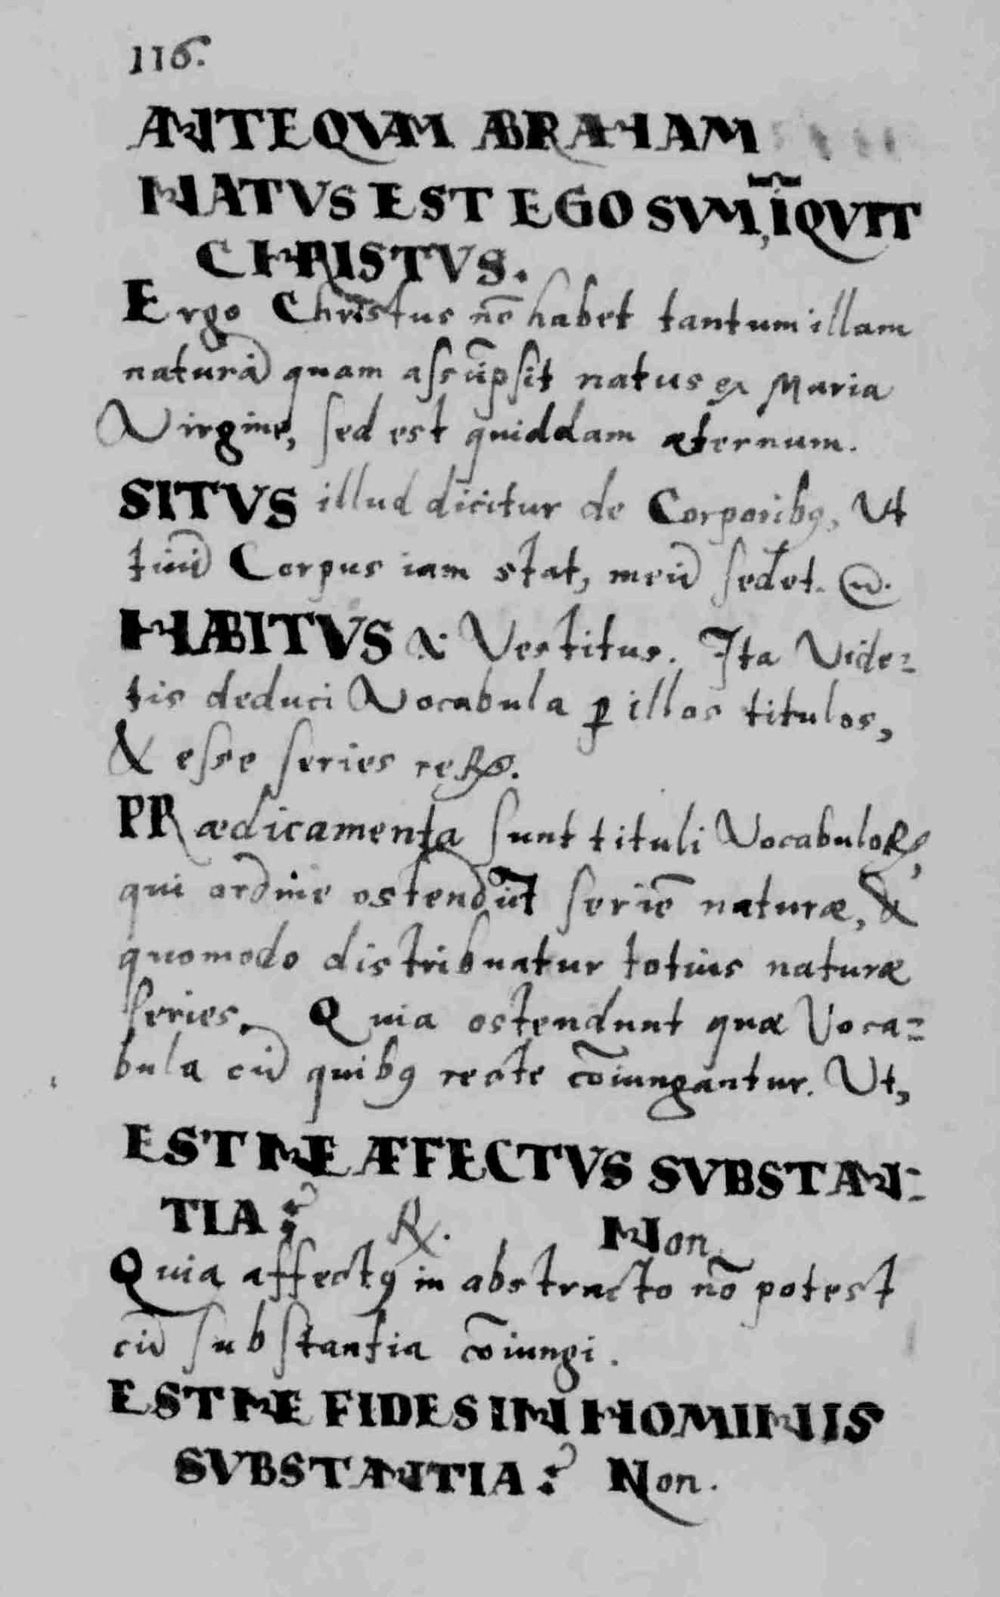 116.
ANTEQVAM ABRAHAM
NATVS EST EGO SVM, IQVIT
CHRISTVS.
Ergo Christus nō habet tantum illam
naturā quam assūpsit natus ex Maria
Virgine, sed est quiddam æternum.
SITVS illud dicitur de Corporibꝰ, Ut
tuū Corpus iam stat, meū sedet.
HABITVS & Vestitus. Ita Vide=
tis deduci Vocabula ꝑ illos titulos,
& esse series reꝝ.
PRædicamenta sunt tituli Vocabuloꝝ,
qui ordine ostendūt seriē naturæ, &
quomodo distribuatur totius naturæ
series. Quia ostendunt quæ Voca=
bula cū quibꝰ recte cōiungantur. Ut,
ESTNE AFFECTVS SVBSTAN=
TIA? ℞. Non.
Quia affectꝰ in abstracto nō potest
cū substantia cōiungi.
ESTNE FIDES IN HOMINIIS
SVBSTANTIA? Non.